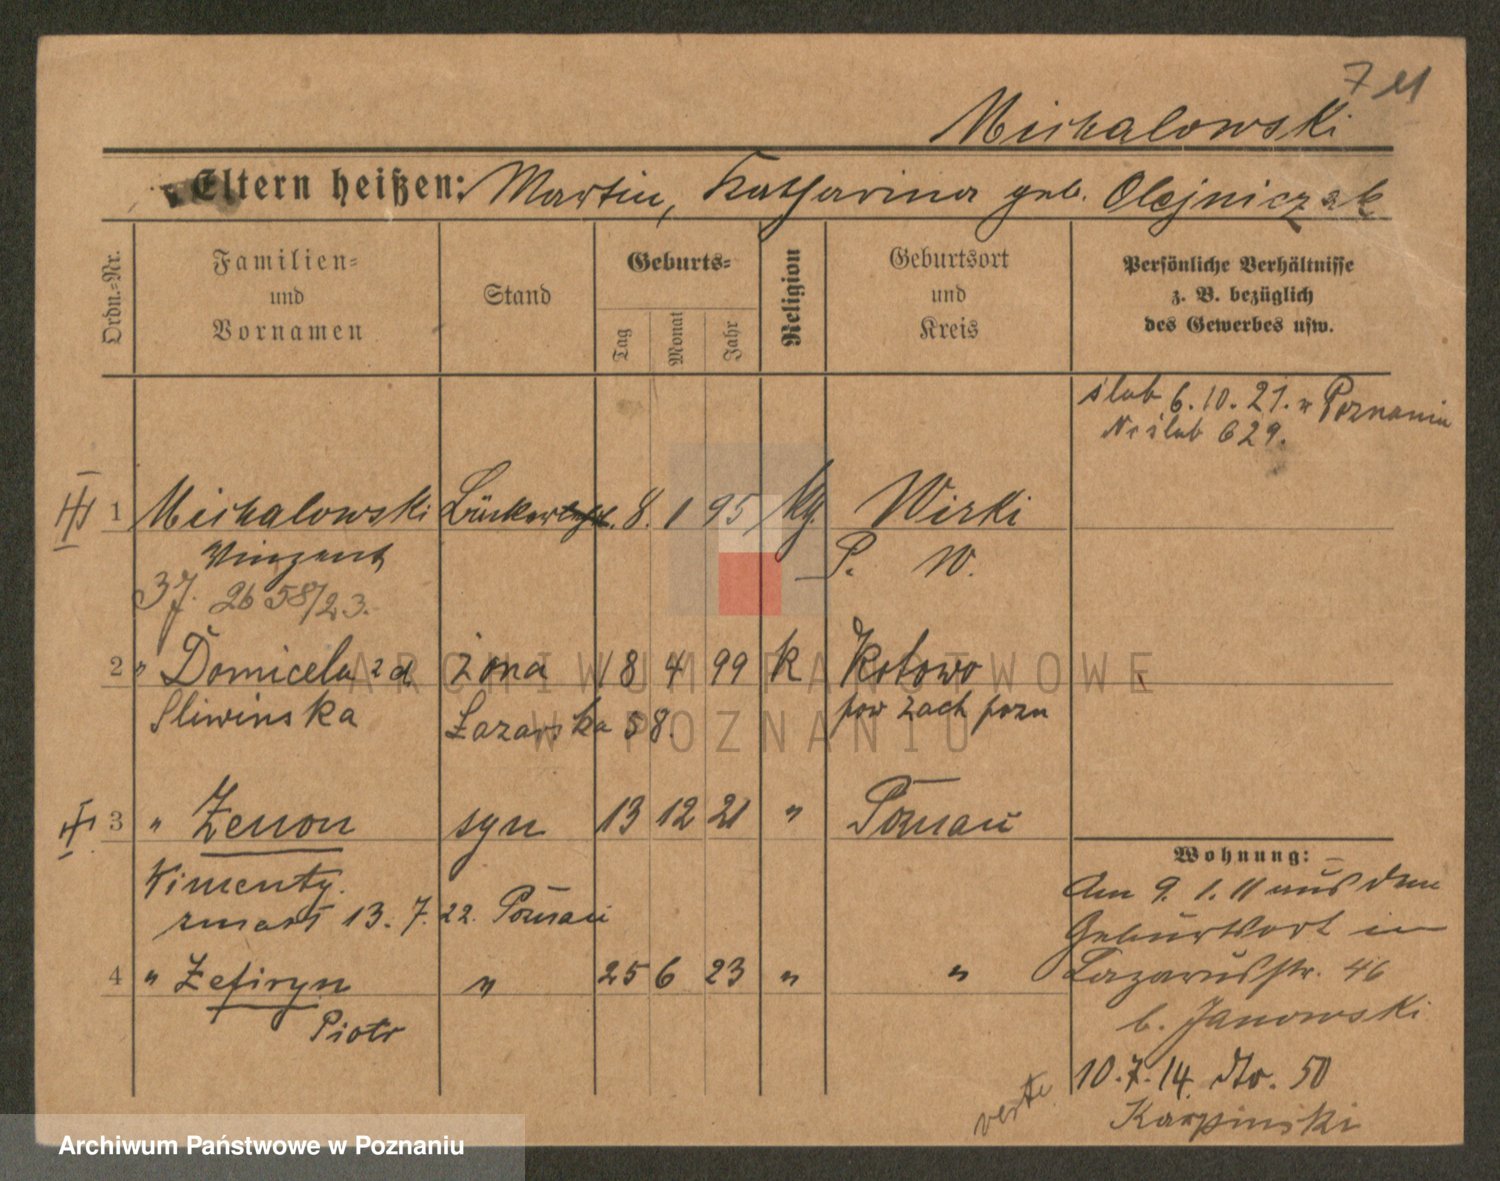 Michalowski
Eltern heißen: Martin, Katharina geb. Olejniczak
Ordn.=Nr.
Familien=
und
Vornamen
Stand
Geburts=
Tag
Monat
Jahr
Religion
Geburtsort
und
Kreis
Persönliche Verhältnisse
z. B. bezüglich
des Gewerbes usw.
slub 6.10.21. w Poznaniu
Nr slub 629.
1 Michalowski 8. 1 95 Wirki
Vinzent P. W.
37. 2658/23.
2 " Domicela zd żona 18 4 99 k Kotowo
Sliwinska Łazarska 58. pow zach pozn
3 " Zenon syn 13 12 21 " Poznań
Klmenty.
zmarł 13.7.22. Poznań
4 " Zefiryn " 25 6 23 " "
Piotr
Wohnung:
Am 9.1.11 aus dem
Geburtsort in
Lazarusstr. 46
b. Janowski
10.7.14. dto. 50
Karpinski
verte
ARCHIWUM PAŃSTWOWE
W POZNANIU
Archiwum Państwowe w Poznaniu